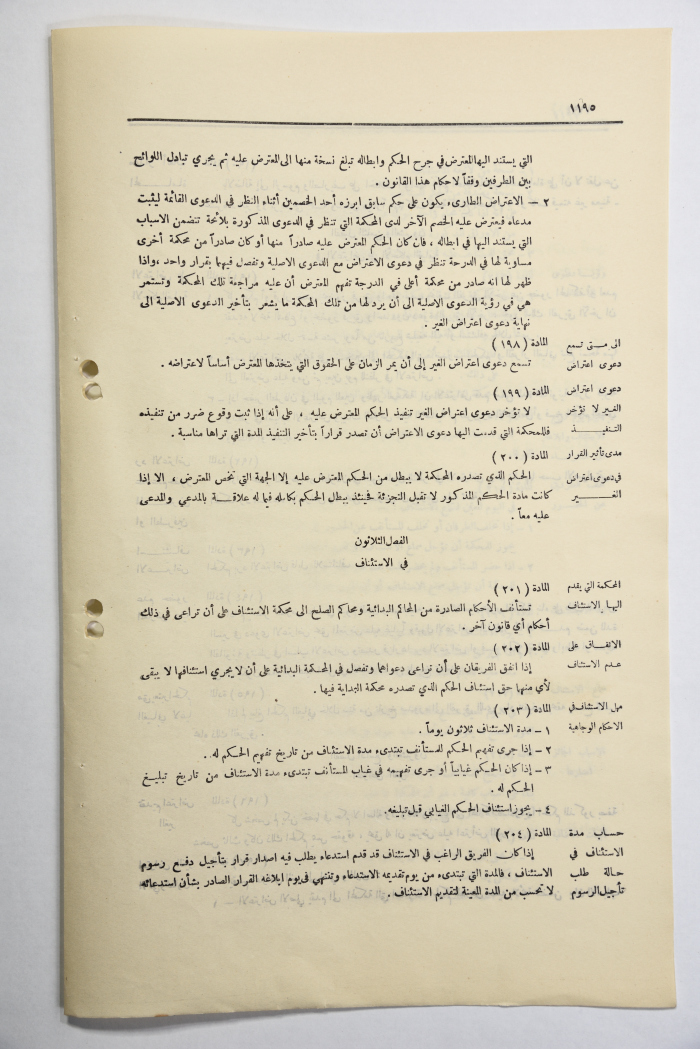 ١١٩٥
التي يستند اليها المعترض في جرح الحكم وابطاله تبلغ نسخة منها الى المعترض عليه ثم يجري تبادل اللوائح
بين الطرفين وفقاً لاحكام هذا القانون .
٢ — الاعتراض الطارىء يكون على حكم سابق ابرزه أحد الخصمين أثناء النظر في الدعوى القائمة ليثبت
مدعاه فيعترض عليه الخصم الآخر لدى المحكمة التي تنظر في الدعوى المذكورة بلائحة تتضمن الاسباب
التي يستند اليها في ابطاله ، فان كان الحكم المعترض عليه صادراً منها أو كان صادراً من محكمة أخرى
مساوية لها في الدرجة تنظر في دعوى الاعتراض مع الدعوى الاصلية وتفصل فيهما بقرار واحد ، واذا
ظهر لها انه صادر من محكمة أعلى في الدرجة تفهم المعترض أن عليه مراجعة تلك المحكمة وتستمر
هي في رؤية الدعوى الاصلية الى أن يرد لها من تلك المحكمة ما يشعر بتأخير الدعوى الاصلية الى
نهاية دعوى اعتراض الغير .
الى متى تسمع المادة ( ١٩٨ )
دعوى اعتراض تسمع دعوى اعتراض الغير إلى أن يمر الزمان على الحقوق التي يتخذها المعترض أساساً لاعتراضه .
دعوى اعتراض المادة ( ١٩٩ )
الغير لا تؤخر لا تؤخر دعوى اعتراض الغير تنفيذ الحكم المعترض عليه ، على أنه إذا ثبت وقوع ضرر من تنفيذه
التنفيذ فللمحكمة التي قدمت اليها دعوى الاعتراض أن تصدر قراراً بتأخير التنفيذ المدة التي تراها مناسبة .
مدى تأثير القرار المادة ( ٢٠٠ )
في دعوى اعتراض الحكم الذي تصدره المحكمة لا يبطل من الحكم المعترض عليه إلا الجهة التي تخص المعترض ، الا إذا
الغير كانت مادة الحكم المذكور لا تقبل التجزئة فحينئذ يبطل الحكم بكامله فيما له علاقة بالمدعي والمدعى
عليه معاً .
الفصل الثلاثون
في الاستئناف
المحكمة التي يقدم المادة ( ٢٠١ )
اليها الاستئناف تستأنف الأحكام الصادرة من المحاكم البدائية ومحاكم الصلح الى محكمة الاستئناف على أن تراعى في ذلك
أحكام أي قانون آخر .
الاتفاق على المادة ( ٢٠٢ )
عدم الاستئناف إذا اتفق الفريقان على أن تراعى دعواهما وتفصل في المحكمة البدائية على أن لا يجري استئنافها لا يبقى
لأي منهما حق استئناف الحكم الذي تصدره محكمة البداية فيها .
مهل الاستئناف في المادة ( ٢٠٣ )
الاحكام الوجاهية ١ — مدة الاستئناف ثلاثون يوماً .
٢ — إذا جرى تفهيم الحكم للمستأنف تبتدىء مدة الاستئناف من تاريخ تفهيم الحكم له .
٣ — إذا كان الحكم غيابياً أو جرى تفهيمه في غياب المستأنف تبتدىء مدة الاستئناف من تاريخ تبليغ
الحكم له .
٤ — يجوز استئناف الحكم الغيابي قبل تبليغه .
حساب مدة المادة ( ٢٠٤ )
الاستئناف في إذا كان الفريق الراغب في الاستئناف قد قدم استدعاء يطلب فيه اصدار قرار بتأجيل دفع رسوم
حالة طلب الاستئناف ، فالمدة التي تبتدىء من يوم تقديمه الاستدعاء وتنتهي في يوم ابلاغه القرار الصادر بشأن استدعائه
تأجيل الرسوم لا تحسب من المدة المعينة لتقديم الاستئناف .